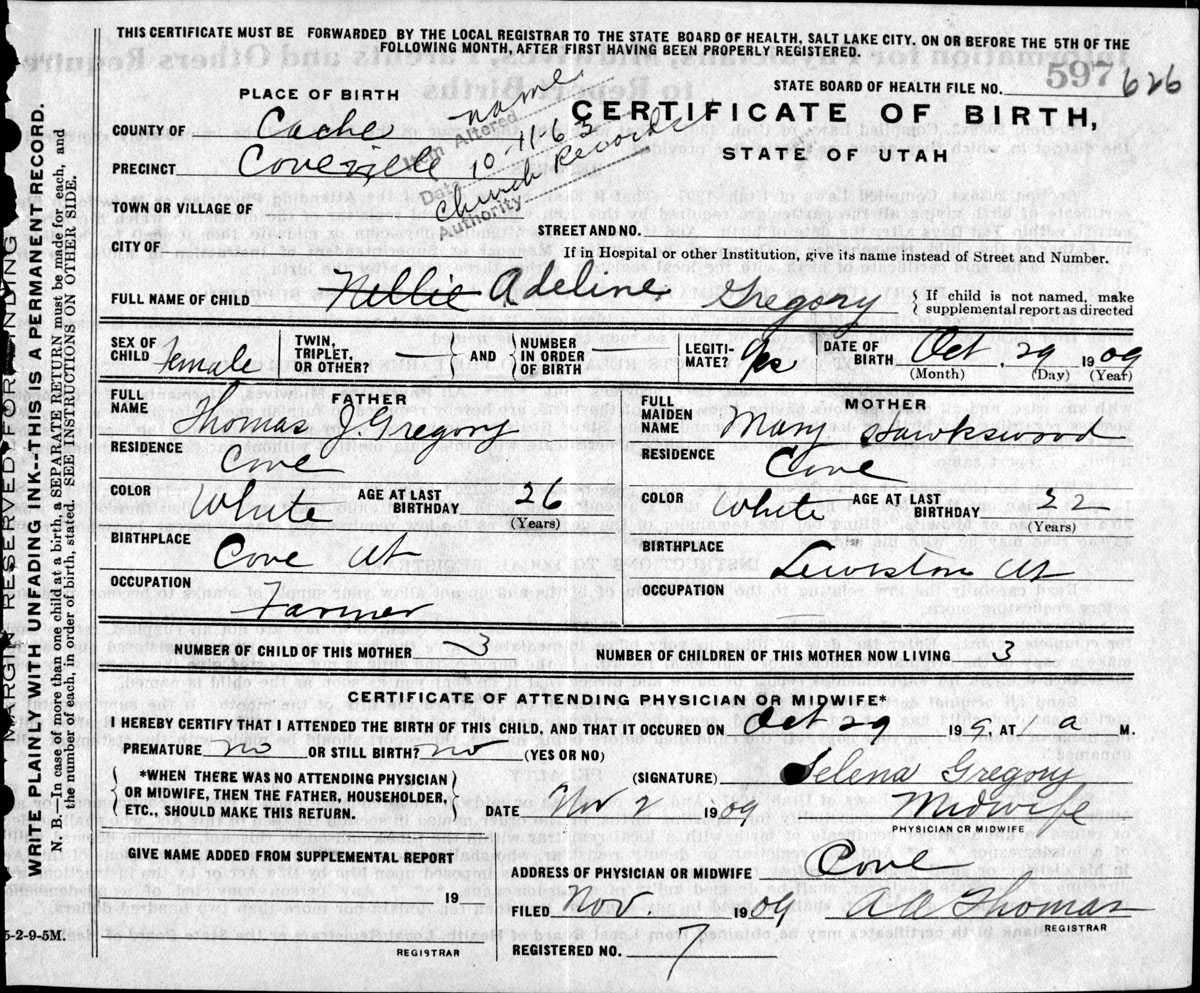 THIS CERTIFICATE MUST BE FORWARDED BY THE LOCAL REGISTRAR TO THE STATE BOARD OF HEALTH, SALT LAKE CITY, ON OR BEFORE THE 5TH OF THE
FOLLOWING MONTH, AFTER FIRST HAVING BEEN PROPERLY REGISTERED.
597 626
STATE BOARD OF HEALTH FILE NO.
PLACE OF BIRTH
CERTIFICATE OF BIRTH,
STATE OF UTAH
COUNTY OF Cache
PRECINCT Coveville
Item Altered name
Date 10-11-63
Authority Church Records
TOWN OR VILLAGE OF
STREET AND NO.
CITY OF
If in Hospital or other Institution, give its name instead of Street and Number.
FULL NAME OF CHILD Nellie Adeline Gregory
If child is not named, make
supplemental report as directed
SEX OF CHILD Female
TWIN, TRIPLET, OR OTHER? — AND NUMBER IN ORDER OF BIRTH
LEGITIMATE? Yes
DATE OF BIRTH Oct 29 1909
(Month) (Day) (Year)
FATHER
FULL NAME Thomas J. Gregory
RESIDENCE Cove
COLOR White AGE AT LAST BIRTHDAY 26
(Years)
BIRTHPLACE Cove Ut
OCCUPATION Farmer
MOTHER
FULL MAIDEN NAME Mary Hawkswood
RESIDENCE Cove
COLOR White AGE AT LAST BIRTHDAY 22
(Years)
BIRTHPLACE Lewiston Ut
OCCUPATION
NUMBER OF CHILD OF THIS MOTHER 3
NUMBER OF CHILDREN OF THIS MOTHER NOW LIVING 3
CERTIFICATE OF ATTENDING PHYSICIAN OR MIDWIFE*
I HEREBY CERTIFY THAT I ATTENDED THE BIRTH OF THIS CHILD, AND THAT IT OCCURED ON Oct 29 199, AT a M.
PREMATURE no OR STILL BIRTH? no (YES OR NO)
*WHEN THERE WAS NO ATTENDING PHYSICIAN
OR MIDWIFE, THEN THE FATHER, HOUSEHOLDER,
ETC., SHOULD MAKE THIS RETURN.
(SIGNATURE) Selena Gregory
DATE Nov 2 1909 Midwife
PHYSICIAN OR MIDWIFE
GIVE NAME ADDED FROM SUPPLEMENTAL REPORT
19
ADDRESS OF PHYSICIAN OR MIDWIFE Cove
FILED Nov 1909 Thomas
REGISTRAR
REGISTRAR
REGISTERED NO. 7
5-2-9-5M.
MARGIN RESERVED FOR BINDING
WRITE PLAINLY WITH UNFADING INK--THIS IS A PERMANENT RECORD.
N. B.—In case of more than one child at a birth, a SEPARATE RETURN must be made for each, and
the number of each, in order of birth, stated. SEE INSTRUCTIONS ON OTHER SIDE.